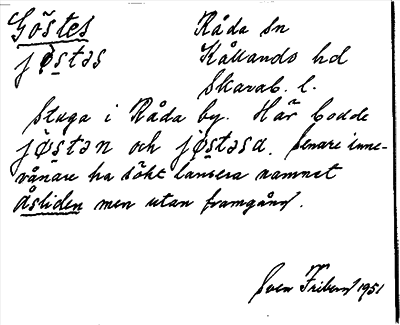 Göstes Råda sn
jøstəs Kållands hd
Skarab. l.
Stuga i Råda by. Här bodde
jøstən och jøstəsa. Senare inne-
vånare ha sökt lansera namnet
Åsliden men utan framgång.
Sven Friberg 1951